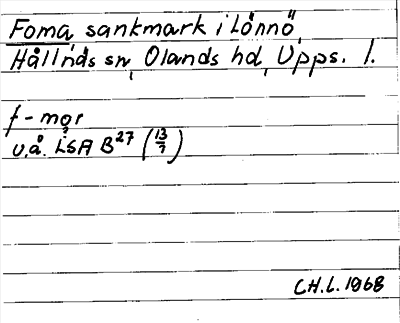 Foma, sankmark i Lönnö,
Hållnäs sn, Olands hd, Upps. l.
f-mar
u.å. LSA B27 (13/7)
C.H.L. 1968